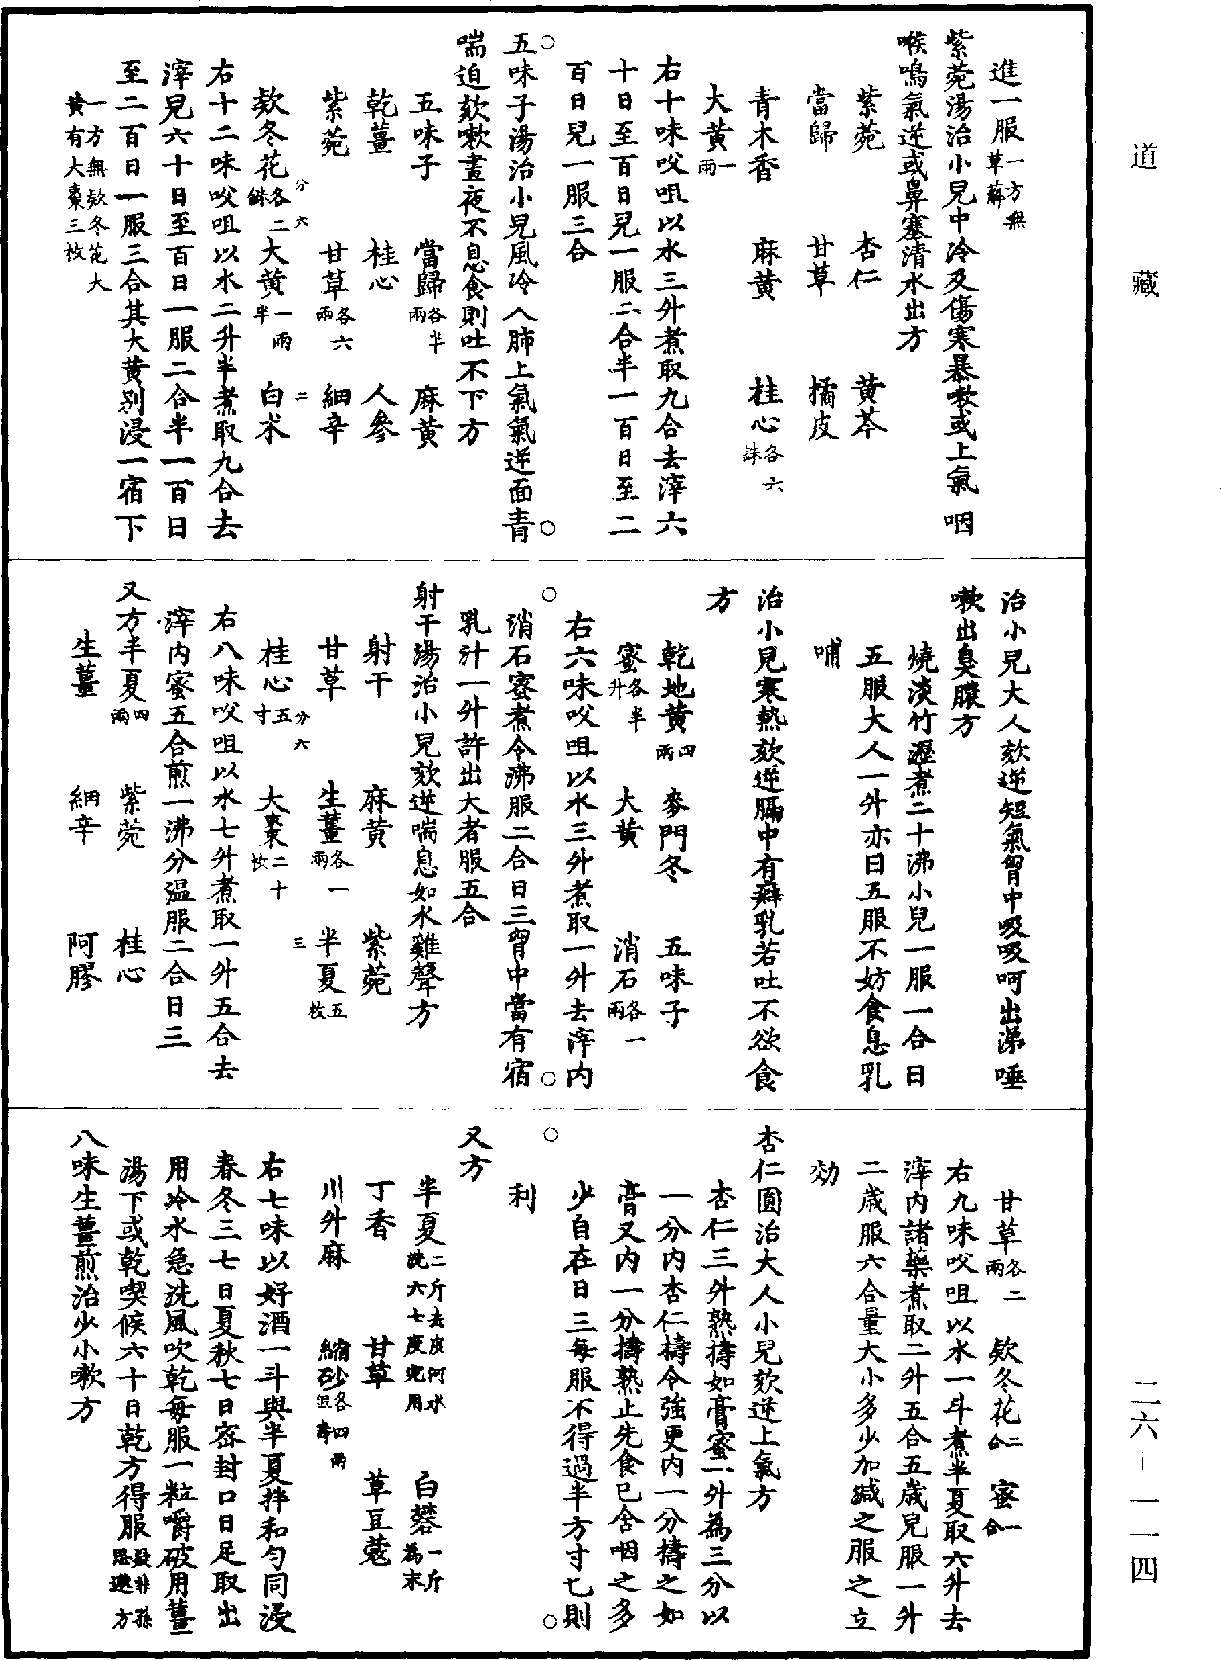 道藏
進一服一方無草麻
紫菀湯治小兒中冷及傷寒暴嗽或上氣咽
喉鳴氣逆或鼻塞清水出方
紫菀 杏仁 黃芩
當歸 甘草 橘皮
青木香 麻黃 桂心各六銖
大黃一兩
右十味㕮咀以水三升煮取九合去滓六
十日至百日兒一服二合半一百日至二
百日兒一服三合
五味子湯治小兒風冷入肺上氣氣逆面青
喘迫欬嗽晝夜不息食則吐不下方
五味子 當歸各半兩 麻黃
乾薑 桂心 人參
紫菀 甘草各六兩 細辛
分六 二
款冬花各二銖 大黃一兩半 白朮
右十二味㕮咀以水二升半煮取九合去
滓兒六十日至百日一服二合半一百日
至二百日一服三合其大黃別浸一宿下
一方無款冬花大黃有大棗三枚
治小兒大人欬逆短氣胷中吸吸呵出涕唾
嗽出臭膿方
燒淡竹瀝煮二十沸小兒一服一合日
五服大人一升亦日五服不妨食息乳
哺
治小兒寒熱欬逆膈中有癖乳若吐不欲食
方
乾地黃四兩 麥門冬 五味子
蜜各半升 大黃 消石各一兩
右六味㕮咀以水三升煮取一升去滓內
消石蜜煮令沸服二合日三胷中當有宿
乳汁一升許出大者服五合
射干湯治小兒欬逆喘息如水雞聲方
射干 麻黃 紫菀
甘草 生薑各一兩 半夏五枚
分六 三
桂心五寸 大棗二十枚
右八味㕮咀以水七升煮取一升五合去
滓內蜜五合煎一沸分溫服二合日三
又方半夏四兩 紫菀 桂心
生薑 細辛 阿膠
甘草各二兩 欵冬花二合 蜜一合
右九味㕮咀以水一斗煮半夏取六升去
滓內諸藥煮取二升五合五歲兒服一升
二歲服六合量大小多少加減之服之立
効
杏仁圓治大人小兒欬逆上氣方
杏仁三升熟擣如膏蜜一升為三分以
一分內杏仁擣令強更內一分擣之如
膏又內一分擣熟止先食已含咽之多
少自在日三每服不得過半方寸匕則
利
又方
半夏二斤去皮河水洗六七度完用 白礬一斤為末
丁香 甘草 草豆蔻
川升麻 縮砂各四兩
右七味以好酒一斗與半夏拌和勻同浸
春冬三七日夏秋七日密封口日足取出
用冷水急洗風吹乾每服一粒嚼破用薑
湯下或乾喫候六十日乾方得服疑非孫思邈方
八味生薑煎治少小嗽方
二六－一一四